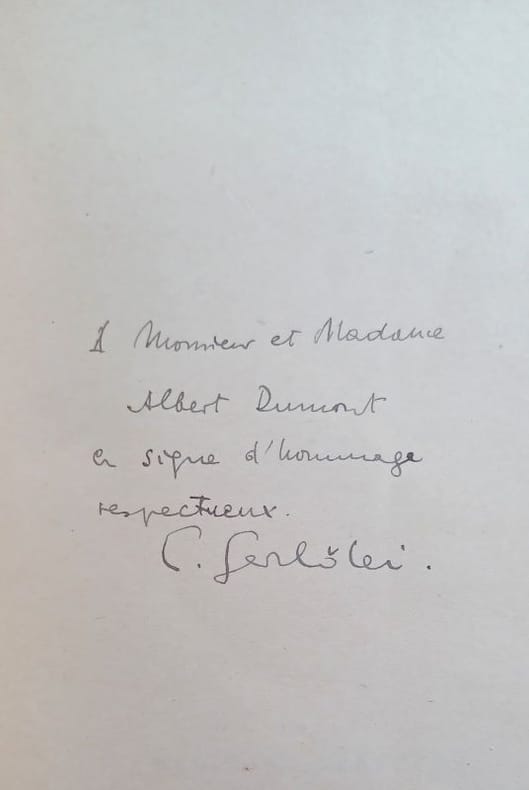 A Monsieur et Madame
Albert Dumont
en signe d'hommage
respectueux.
C.